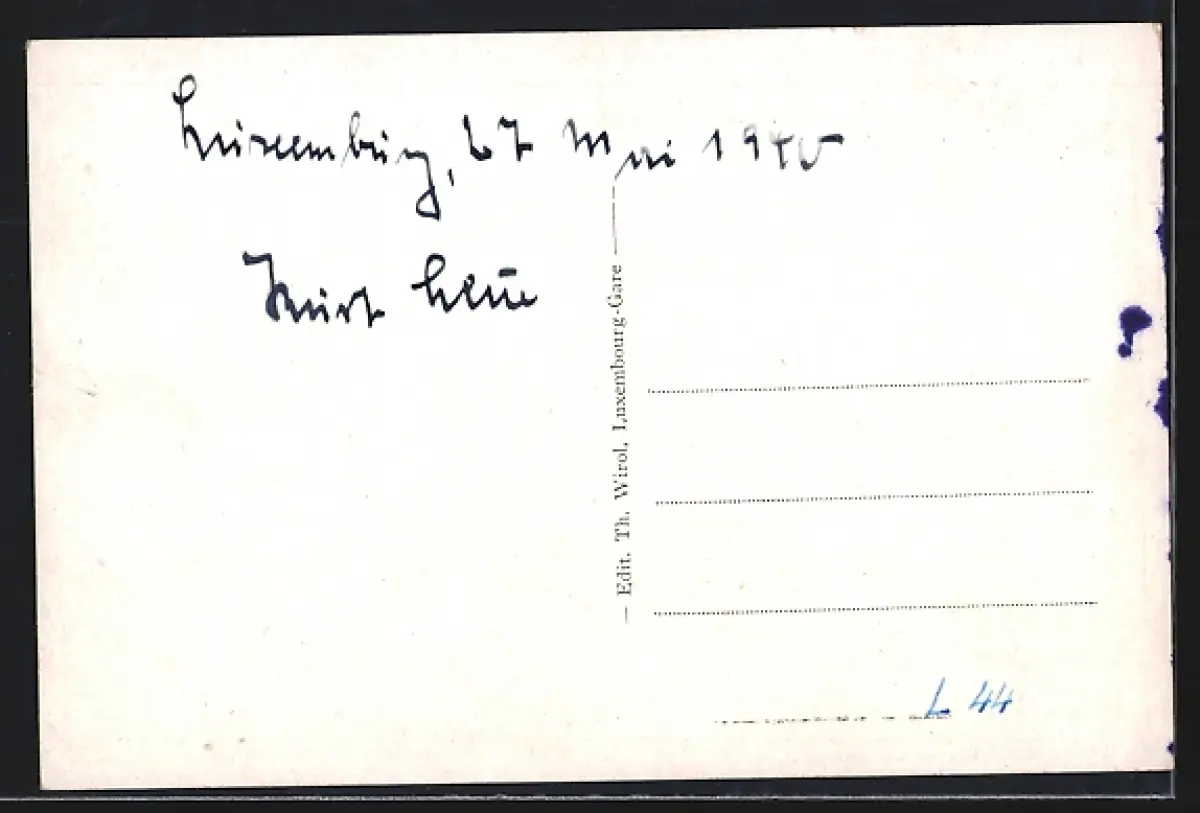 Luxemburg, 27 Mai 1940
Kurt
— Edit. Th. Wirol, Luxembourg-Gare —
L 44